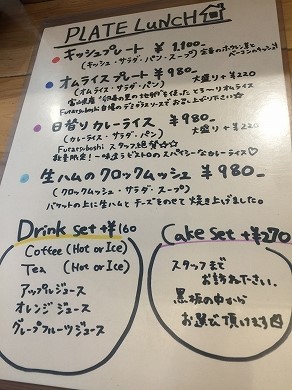 PLATE LUNCH
キッシュプレート ￥1,100-
(キッシュ・サラダ・パン・スープ)
オムライスプレート ￥980-
(オムライス・サラダ・パン) 大盛り+￥220
日替りカレーライス ￥980-
(カレーライス・サラダ・パン) 大盛り+￥220
Futaruboshi スタッフ絶賛☆☆
数量限定!一味違うビストロのスパイシーなカレーライス♡
生ハムのクロックムッシュ ￥980-
(クロックムッシュ・サラダ・スープ)
バケットの上に生ハムとチーズをのせて焼き上げました。
Drink set +￥160
Coffee (Hot or Ice)
Tea (Hot or Ice)
アップルジュース
オレンジジュース
グレープフルーツジュース
Cake set +￥270
スタッフまで
お訪ね下さい。
黒板の中から
お選び頂けます